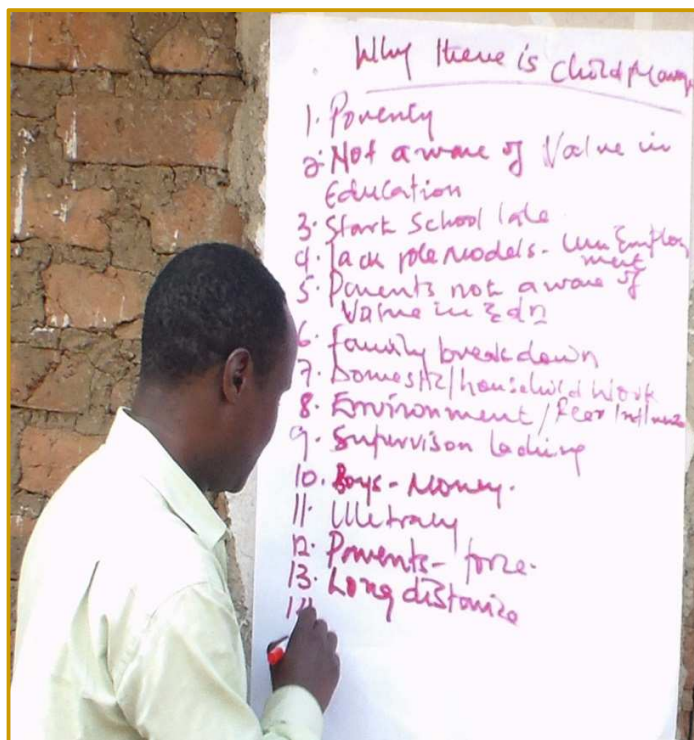 Why there is child Marriage
1. Poverty
2. Not aware of Value in
Education
3. Start School late
4. Lack role models - Un Employ
ment
5. Parents not aware of
Value in Edn
6. family breakdown
7. Domestic/household work
8. Environment / Peer Influence
9. Supervison lacking
10. Boys - Money.
11. Illetracy
12. Parents - force.
13. Long distance
14